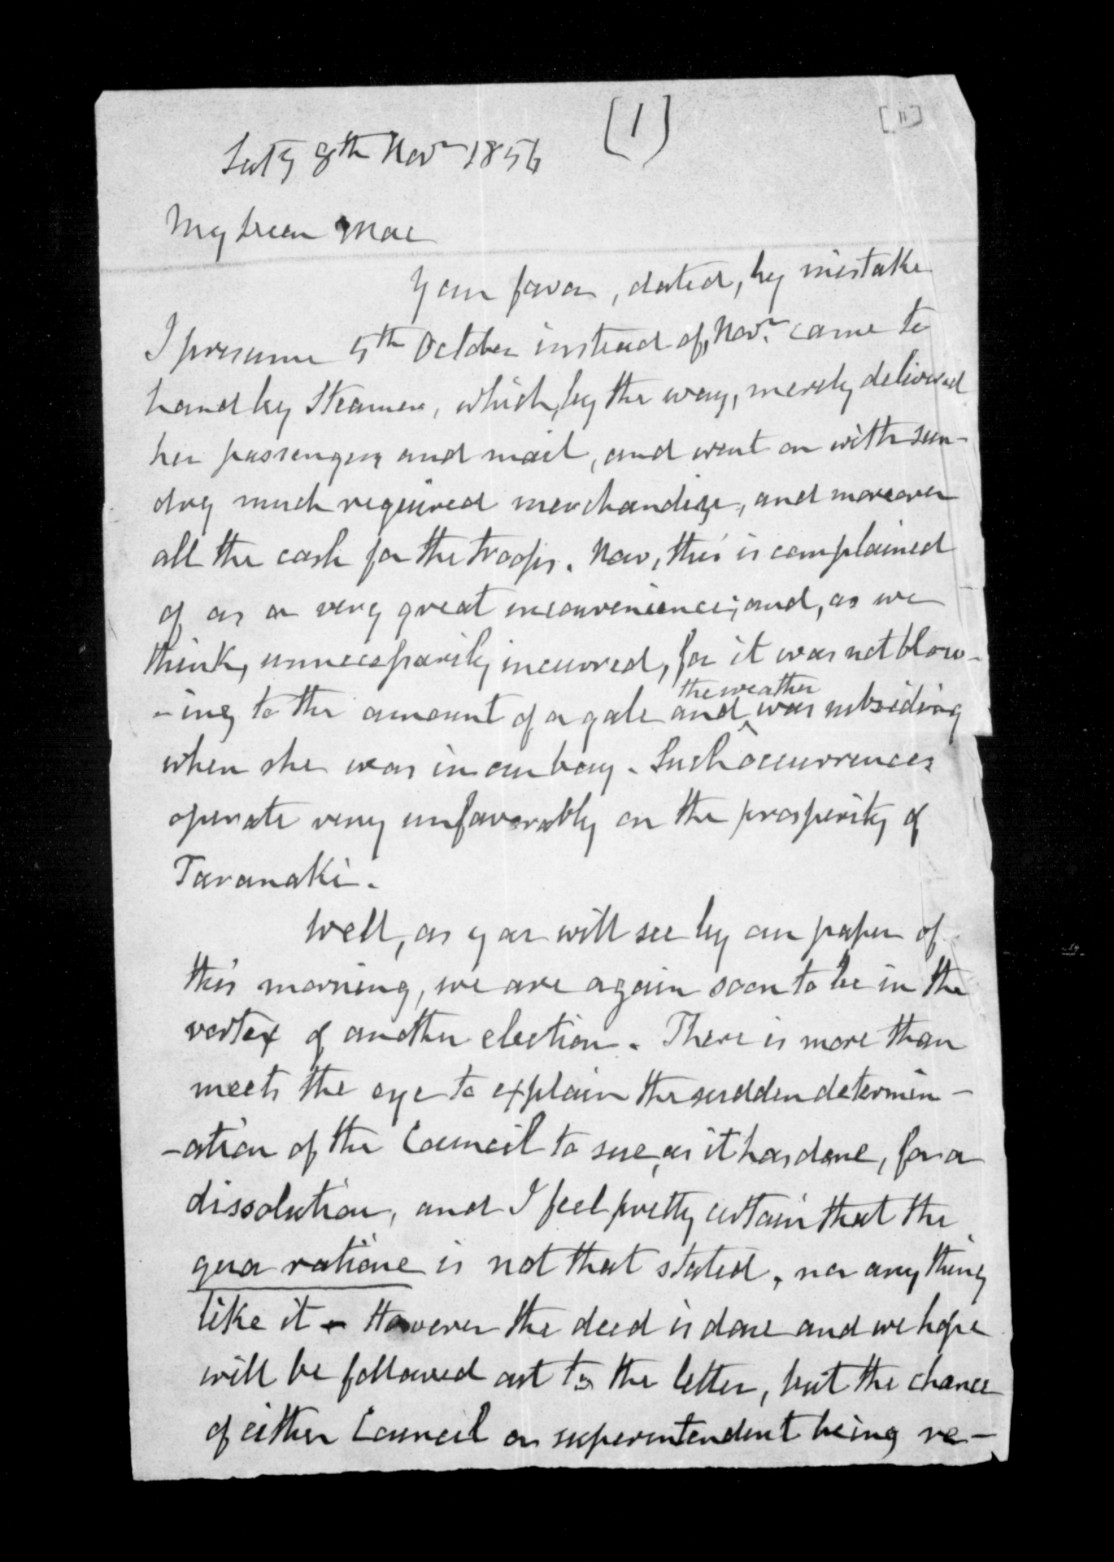 (1)
[11]
Saty 8th Novr 1856
My dear Mac
Your favor, dated, by mistake
I presume 5th October instead of, Novr. came to
hand by Steamer, which, by the way, merely delivered
her passengers and mail, and went on with sun-
dry much required merchandize, and moreover
all the cash for the troops. Now, this is complained
of as a very great inconvenience; and, as we
think, unnecessarily incurred, for it was not blow-
-ing to the amount of a gale and the weather was subsiding
when she was in our bay. Such occurrences
operate very unfavorably on the prosperity of
Taranaki.
Well, as you will see by our paper of
this morning, we are again soon to be in the
vortex of another election. There is more than
meets the eye to explain the sudden determin-
-ation of the Council to sue, as it has done, for a
dissolution, and I feel pretty certain that the
qua ratione is not that stated, nor any thing
like it - However the deed is done and we hope
will be followed out to the letter, but the chance
of either Council or superintendent being re-